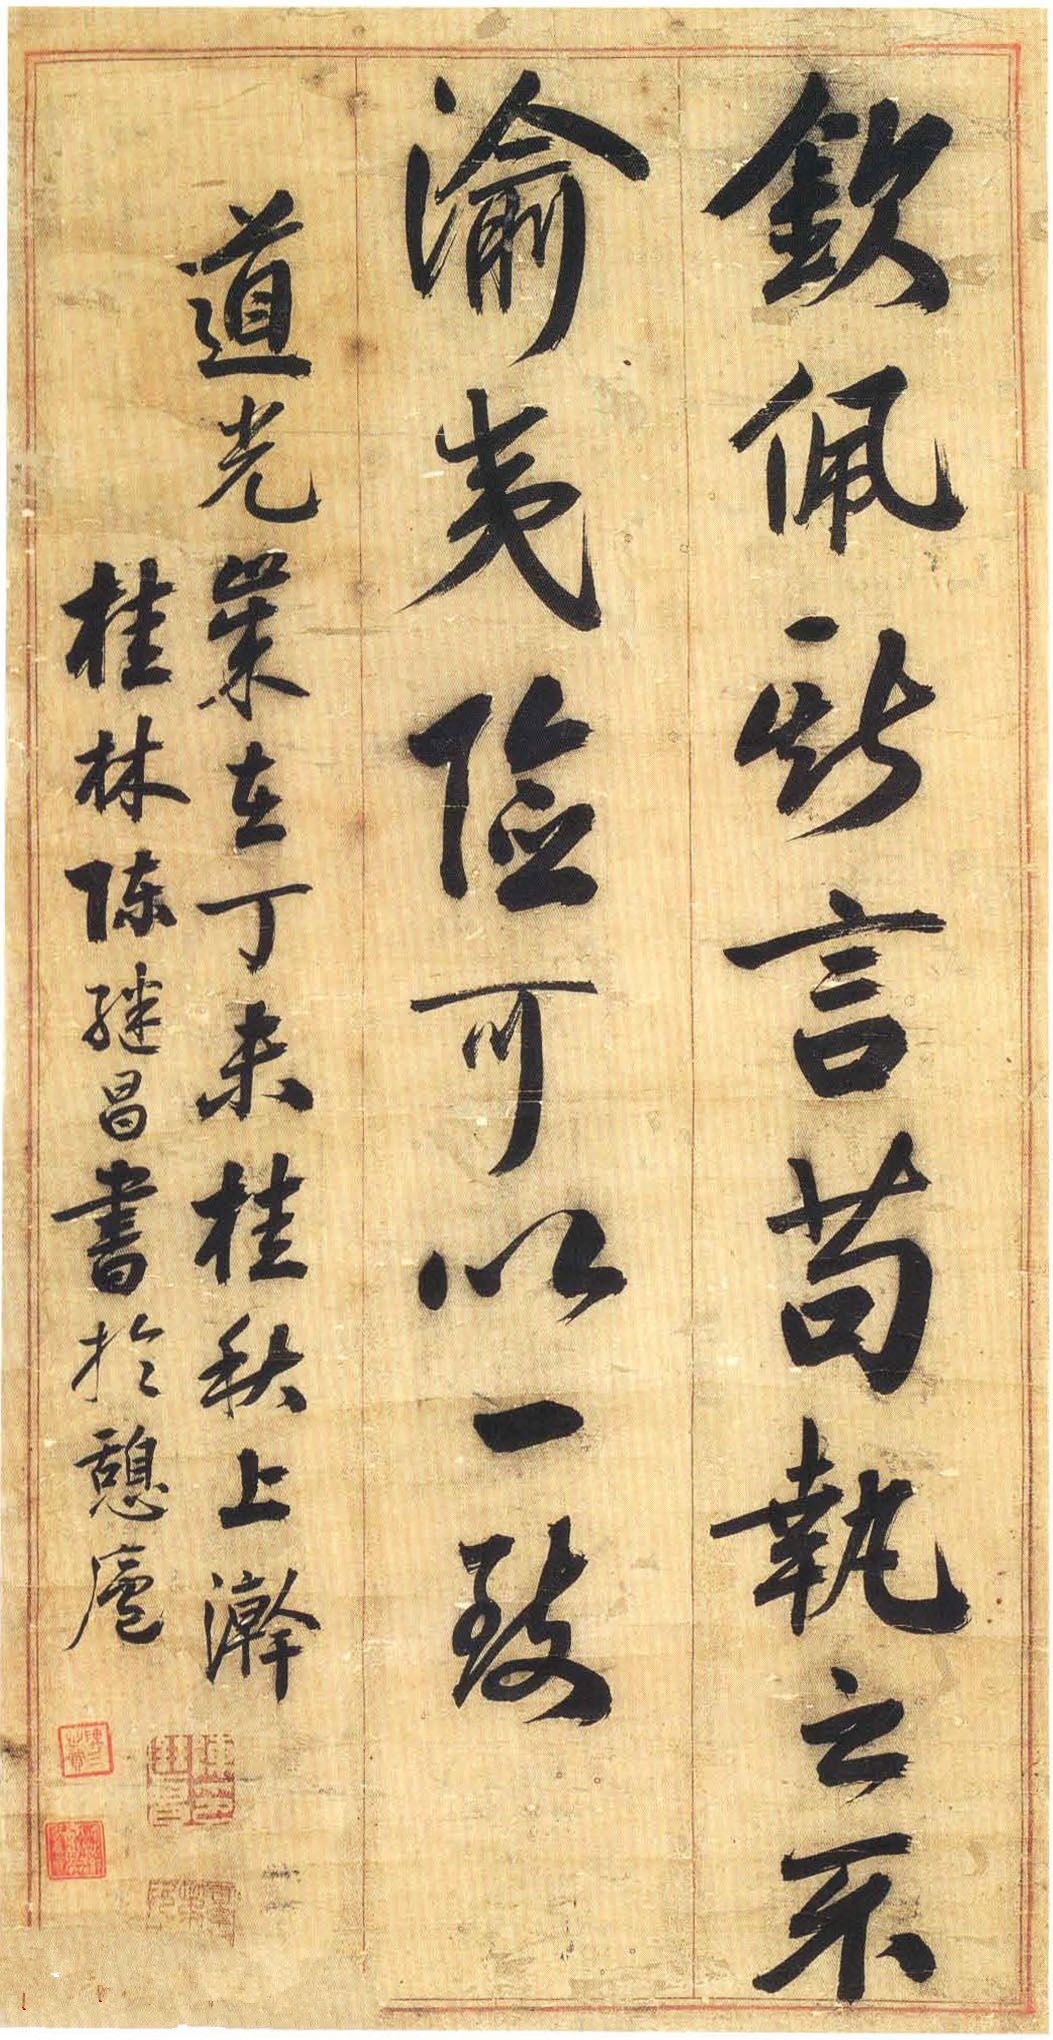 欽佩斯言苟執之不
渝夷險可以一致
道光歲在丁未桂秋上澣
桂林陳继昌書於憩廬